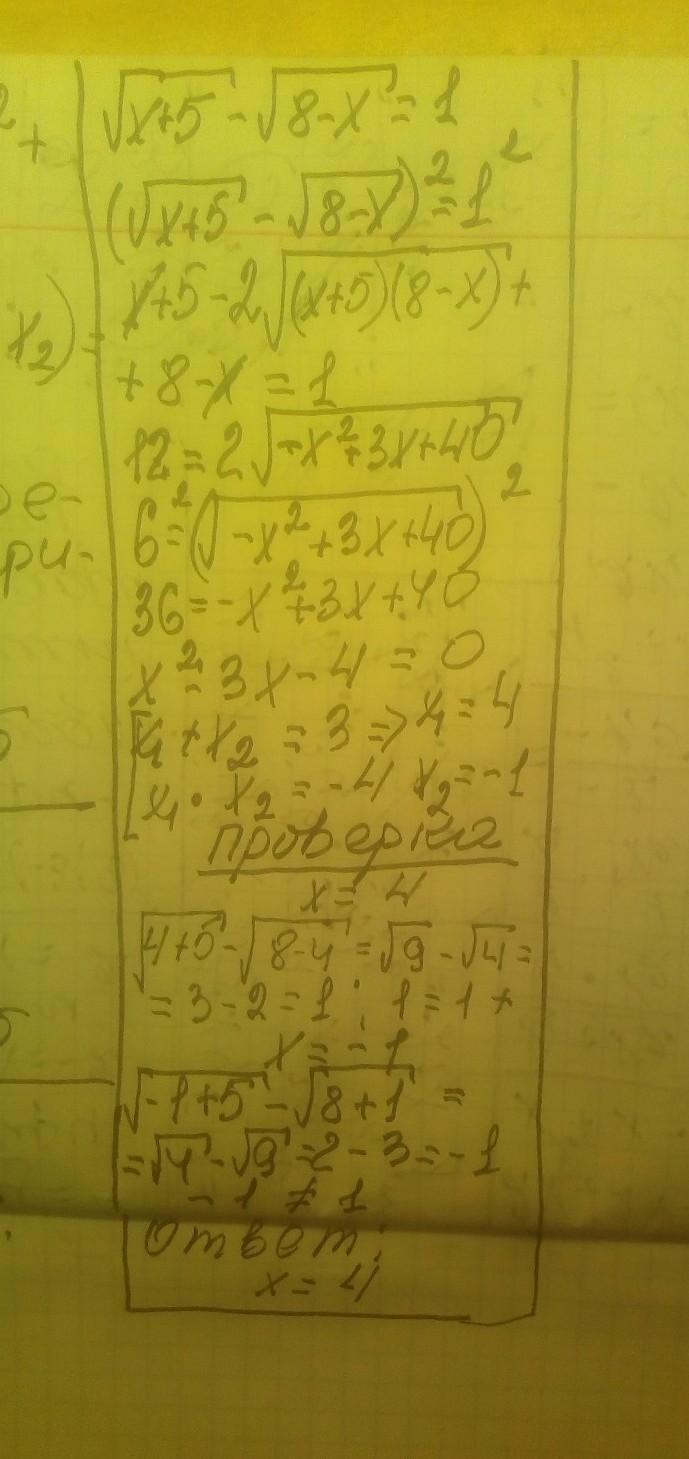 2
+
x₂) =
ое-
ри-
5
5
√(x+5) - √(8-x) = 1
(√(x+5) - √(8-x))² = 1²
x+5-2√((x+5)(8-x)) +
+ 8 - x = 1
12 = 2√(-x²+3x+40)
6² = (√(-x²+3x+40))²
36 = -x²+3x+40
x² - 3x - 4 = 0
[x₁ + x₂ = 3 => x₁ = 4
x₁ · x₂ = -4 x₂ = -1
проверка
x = 4
√(4+5) - √(8-4) = √9 - √4 =
= 3 - 2 = 1; 1 = 1 +
x = -1
√(-1+5) - √(8+1) =
= √4 - √9 = 2 - 3 = -1
-1 ≠ 1
Ответ:
x = 4